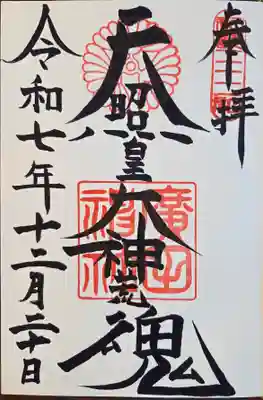 奉拝
天照皇大神荒魂
廣田
神社
令和七年十二月二十日